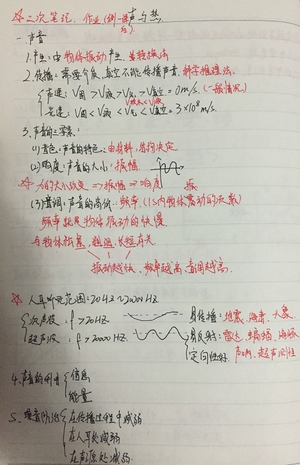 ☆二次笔记. 作业(例一 声与热
一. 声音
1. 产生: 由物体振动产生. 转换法
2. 传播: 靠介质, 真空不能传播声音. 科学推理法.
声速: V固 > V液 > V气 > V真空 = 0m/s. (一般情况)
光速: V固 < V液 < V气 < V真空 = 3×10⁸ m/s
3. 声音的三要素:
(1) 音色: 声音的特色. 由材料, 结构决定
(2) 响度: 声音的大小: 振幅
☆ 力的大小改变 => 振幅 => 响度
(3) 音调: 声音的高低: 频率. (1s内物体震动的次数)
频率就是物体振动的快慢
与物体松紧, 粗细, 长短有关
振动越快, 频率越高, 音调越高.
☆ 人耳听觉范围: 20HZ ~ 20000HZ
次声波: f > 20HZ 易传播: 地震, 海啸, 大象
超声波: f > 20000HZ. 易反射: 雷达, 蝙蝠, 海豚
定向性好: 声呐, 超声
4. 声音的利用 信息
能量
5. 噪音防治 在传播过程中减弱
在人耳处减弱
在声源处减弱